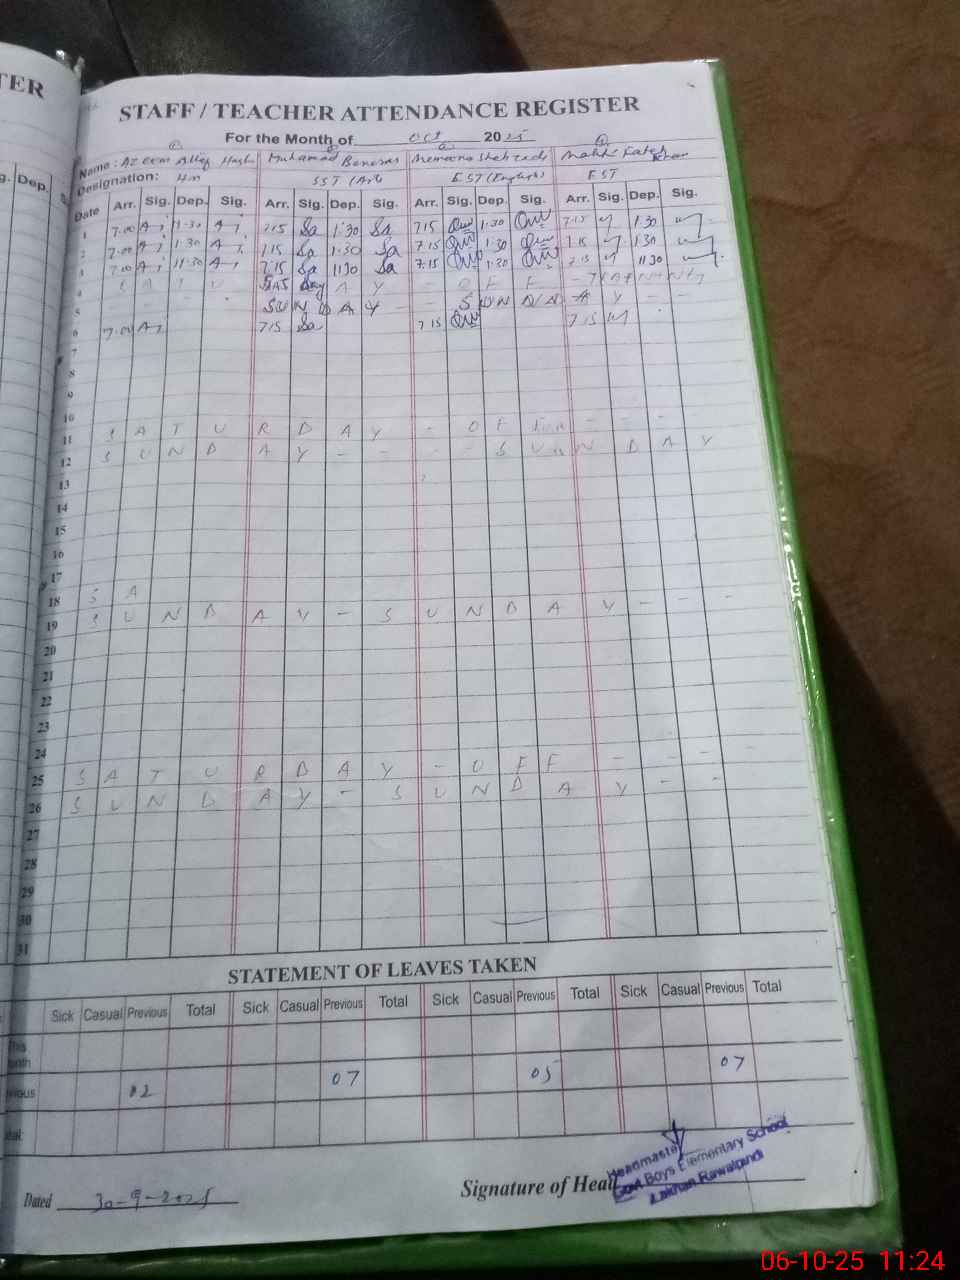 TER
STAFF / TEACHER ATTENDANCE REGISTER
For the Month of Oct 2025
Name : Azeem Muhamad Banaras Memoona Shehzadi Malik Fateh Khan
Designation: Hm SST (Art) EST (English) EST
g. Dep. Date Arr. Sig. Dep. Sig. Arr. Sig. Dep. Sig. Arr. Sig. Dep. Sig. Arr. Sig. Dep. Sig.
1 7.00 1.30 7.15 Sa 1.30 Sa 7.15 1:30 7.15 1.30
2 7.00 1.30 7.15 Sa 1.30 Sa 7.15 1:30 7.15 1.30
3 7.00 11.30 7.15 Sa 1130 Sa 7.15 7.15 1130
4 S A T U A Y - O F F -
5 S U N D A Y - S U N D A Y - -
6 7.00 7.15 Sa 7.15 7.15
7
8
9
10
11 S A T U R D A Y - O F - - -
12 S U N D A Y - - - - S U N D A Y
13
14
15
16
17
18 S A
19 S U N D A Y - S U N D A Y - - -
20
21
22
23
24
25 S A T U R D A Y - O F F - - -
26 S U N D A Y - S U N D A Y - -
27
28
29
30
31
STATEMENT OF LEAVES TAKEN
Sick Casual Previous Total Sick Casual Previous Total Sick Casual Previous Total Sick Casual Previous Total
This
onth
vious 02 07 05 07
otal
Dated 30-9-2025 Signature of Head
Headmaster
Govt. Boys Elementary School
Lakhan Rawalpindi
06-10-25 11:24